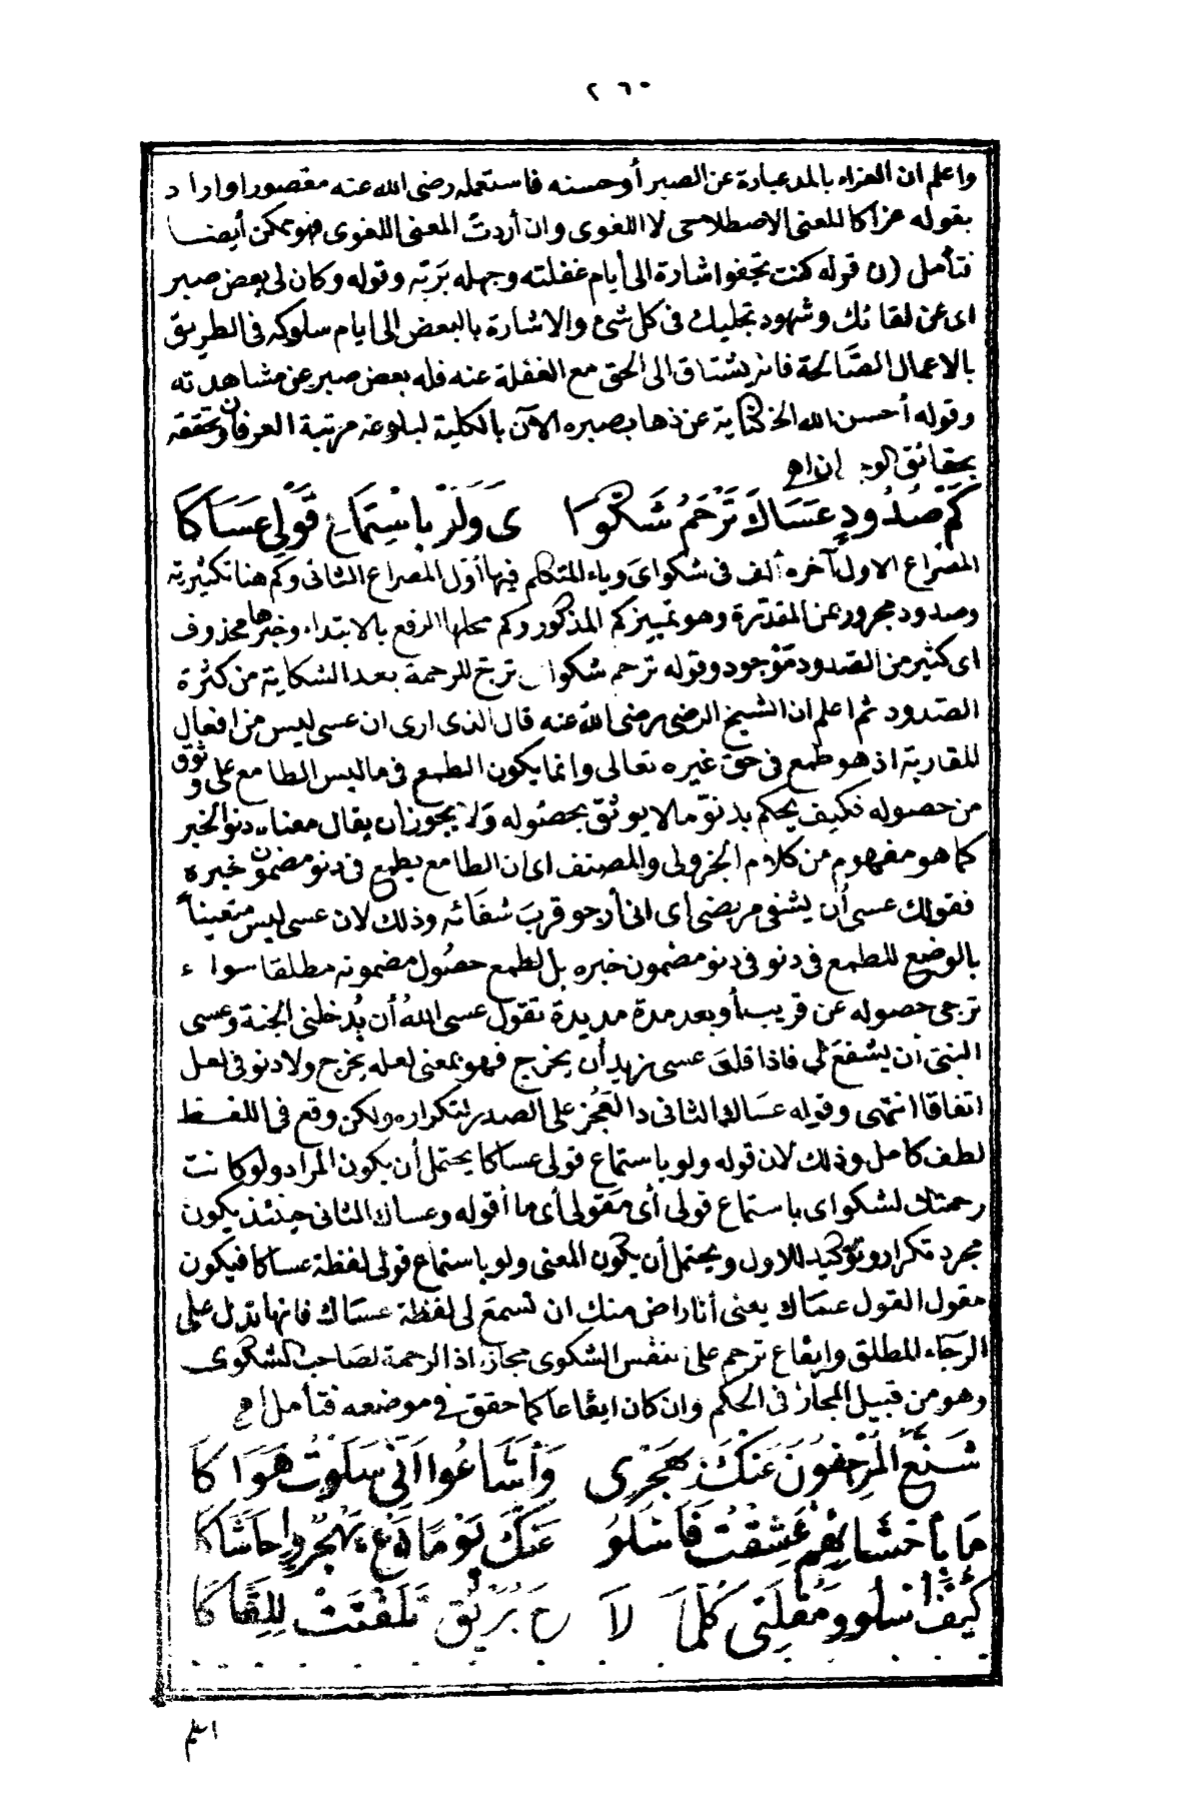 ٢٦٠
واعلم ان العزاء بالمد عبارة عن الصبر أو حسنه فاستعمله رضى الله عنه مقصورا واراد
بقوله عزاكا المعنى الاصطلاحى لا اللغوى وان أردت المعنى اللغوى فهو ممكن أيضا
فتأمل (ن قوله كنت تجفوا شارة الى أيام غفلته وجهله بربّه وقوله وكان لى بعض صبر
اى عن لقائك وشهود تجليك فى كل شئ والاشارة بالبعض الى ايام سلوكه فى الطريق
بالاعمال الصّالحة فانه يشتاق الى الحق مع الغفلة عنه فله بعض صبر عن مشاهدته
وقوله أحسن الله الخ كناية عن ذهاب صبره الآن بالكلية لبلوغه مرتبة العرفان وتحققه
بحقائق الوجدان اهـ
كَمْ صُدُودٍ عَسَاكَ تَرْحَمُ شَكْوَا ىَ وَلَوْ بِاسْتِمَاعِ قَوْلِى عَسَاكَا
المصراع الاول آخره ألف فى شكواى وياء المتكلم فيها أول المصراع الثانى وكم هنا تكثيرية
وصدود مجرور عن المقدّرة وهو تمييز كم المذكور وكم محلها الرفع بالابتداء وخبرها محذوف
اى كثير من الصّدود موجود وقوله ترحم شكواى ترجّ للرحمة بعد الشكاية من كثرة
الصّدود ثم اعلم ان الشيخ الرضى رضى الله عنه قال الذى ارى ان عسى ليس من افعال
المقاربة اذ هو طمع فى حق غيره تعالى وانما يكون الطمع فى ما ليس الطامع على وثوق
من حصوله فكيف يحكم بدنوّ ما لا يوثق بحصوله ولا يجوز ان يقال معناه دنو الخبر
كما هو مفهوم من كلام الجزولى والمصنف اى ان الطامع يطمع فى دنو مضمون خبره
فقولك عسى أن يشفى مريضى أى انى أرجو قرب شفائه وذلك لان عسى ليس متعيناً
بالوضع للطمع فى دنو فى دنو مضمون خبره بل لطمع حصول مضمونه مطلقا سواء
ترجى حصوله عن قريب أو بعد مدة مديدة تقول عسى الله أن يُدخلنى الجنة وعسى
النبى أن يشفعَ لى فاذا قلت عسى زيد أن يخرج فهو بمعنى لعله يخرج ولا دنو فى لعل
اتفاقا انتهى وقوله عساك الثانى رد العَجُز على الصدر لتكراره ولكن وقع فى اللفظ
لطف كامل وذلك لان قوله ولو باستماع قولى عساكا يحتمل أن يكون المراد ولو كانت
رحمتك لشكواى باستماع قولى أى مقولى أى ما أقوله وعساك الثانى حينئذ يكون
مجرد تكرار وتوكيد للاول ويحتمل أن يكون المعنى ولو باستماع قولى لفظة عساكا فيكون
مقول القول عساك يعنى أنا راض منك ان تسمع لى لفظة عساك فانها تدل على
الرجاء المطلق وايقاع ترحم على نفس الشكوى مجاز اذ الرحمة لصاحب الشكوى
وهو من قبيل المجاز فى الحكم وان كان ايقاعا كما حقق فى موضعه فتأمل اهـ
شَنَّعَ الْمُرْجِفُونَ عَنْكَ بِهَجْرِى وَأَشَاعُوا اَنِّى سَلَوْتُ هَوَاكَا
مَا بِأَحْشَائِهِمْ عَشِقْتُ فَأَسْلُو عَنْكَ يَوْمًا دَعْ يَهْجُرُوا حَاشَاكَا
كَيْفَ أَسْلُو وَمُقْلَتِى كُلَّمَا لَا حَ بُرَيْقٌ تَلَفَّتَتْ لِلِقَاكَا
اعلم